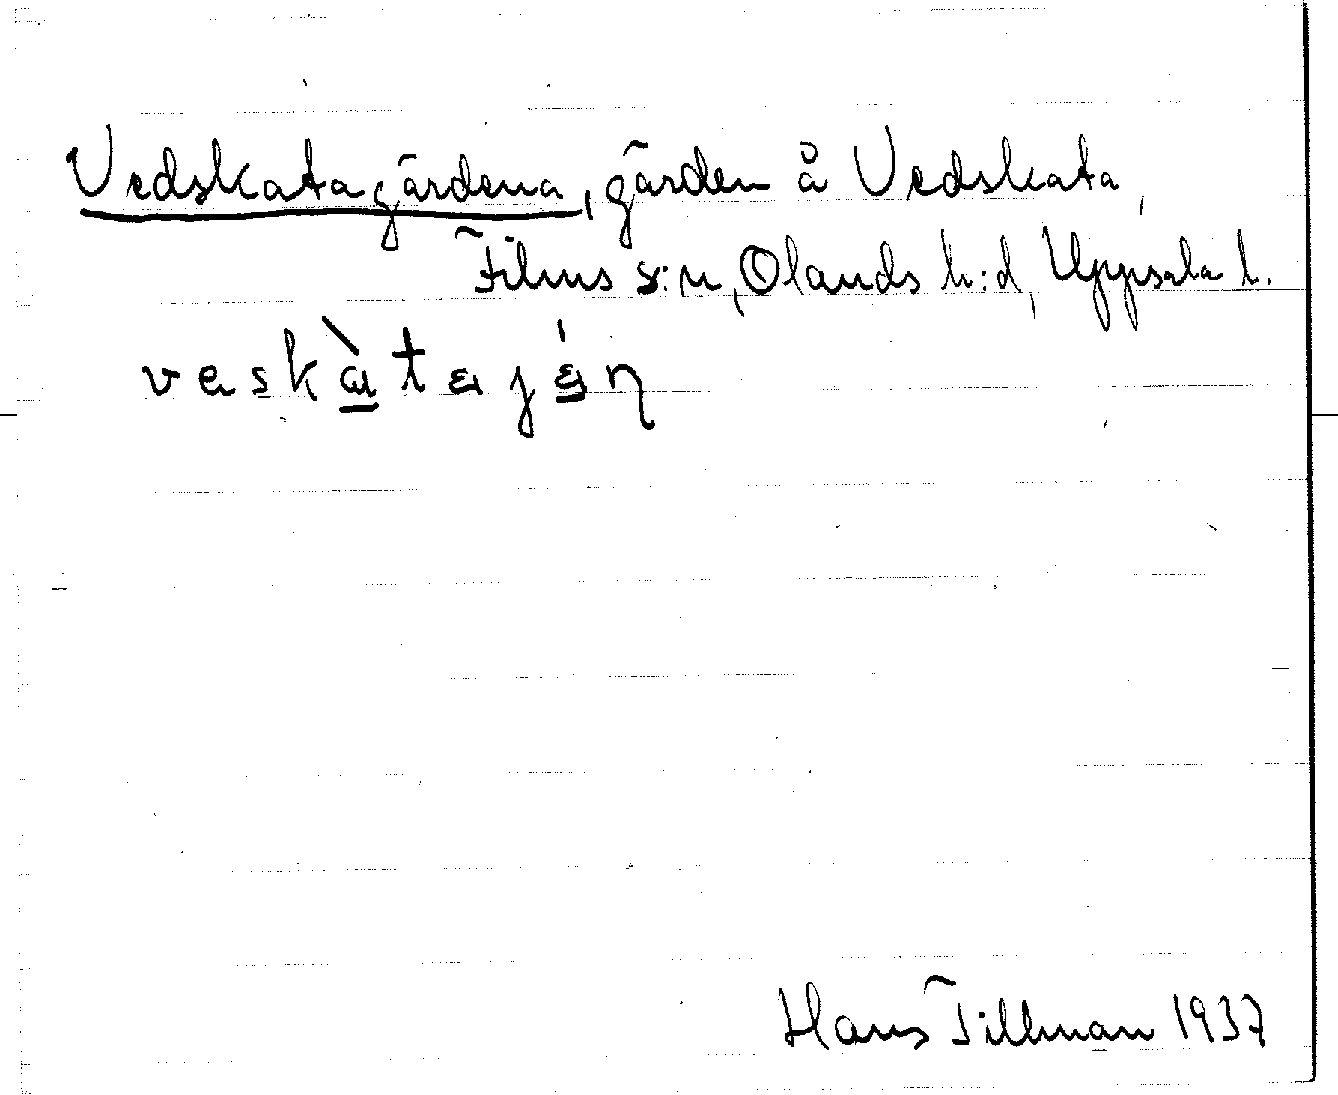 Vedskatagärdena, gärden å Vedskata,
Films s:n, Olands h:d, Uppsala l.
veskàtajä́ṇ
Hans Tillman 1937